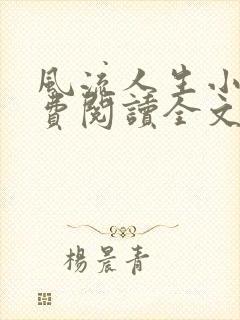 風流人生小
費閱讀全文
楊晨青